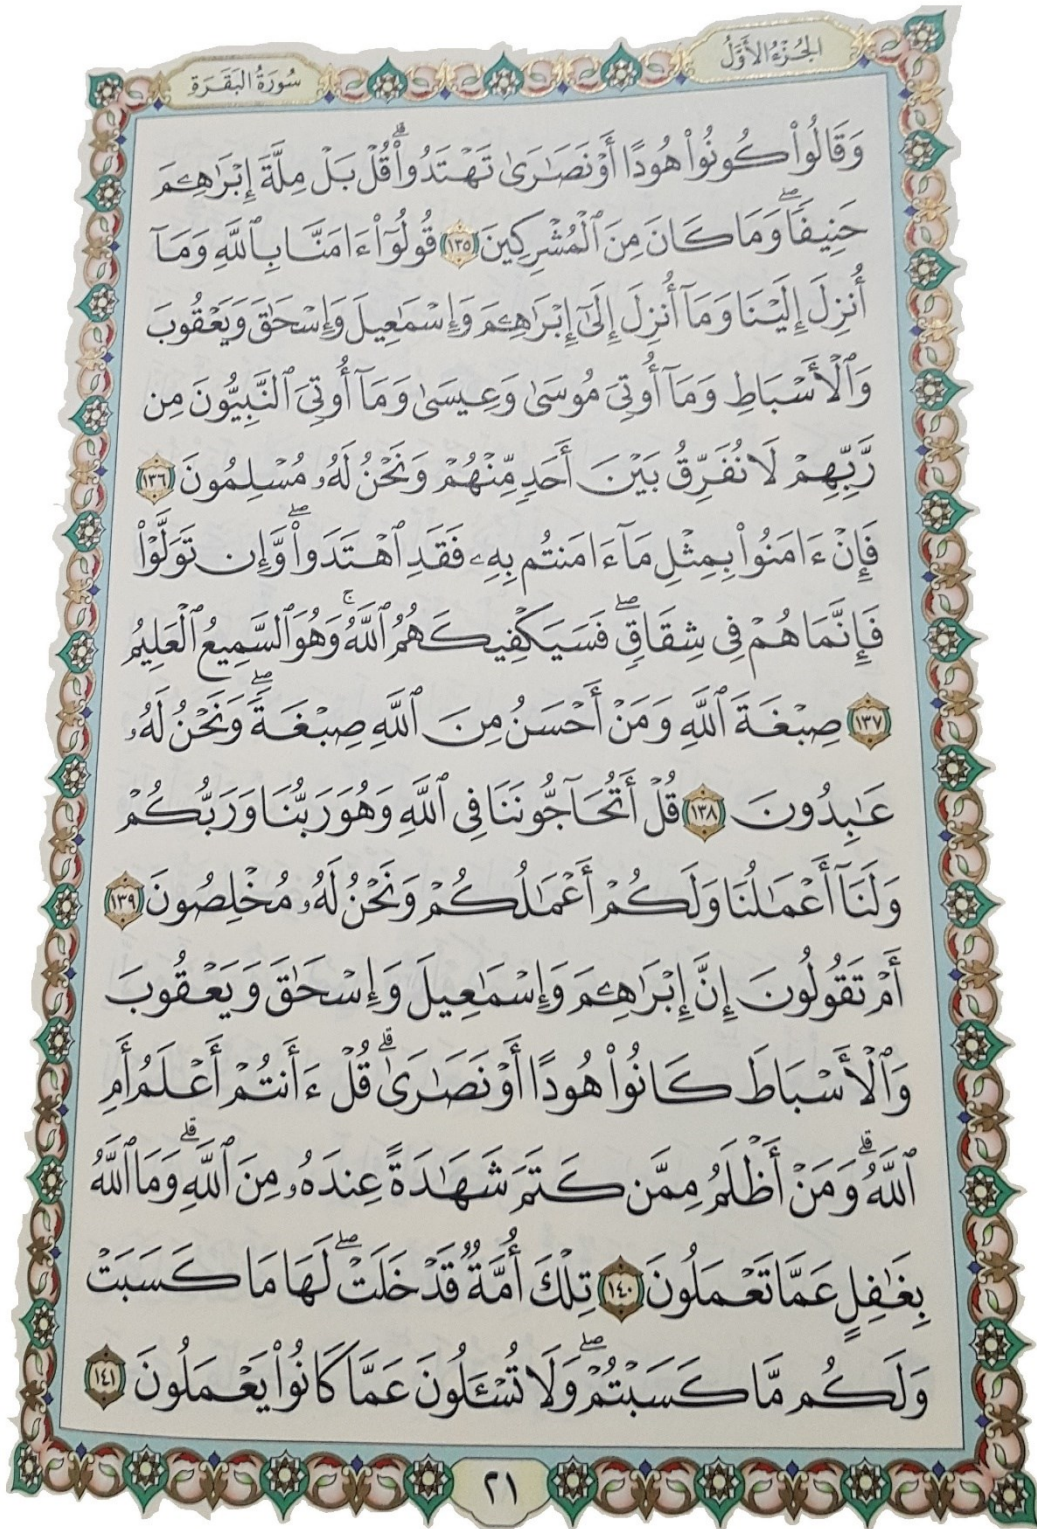 الجُزْءُ الأَوَّلُ
سُورَةُ البَقَرَةِ
وَقَالُوا۟ كُونُوا۟ هُودًا أَوْ نَصَـٰرَىٰ تَهْتَدُوا۟ ۗ قُلْ بَلْ مِلَّةَ إِبْرَٰهِـۧمَ
حَنِيفًا ۖ وَمَا كَانَ مِنَ ٱلْمُشْرِكِينَ ١٣٥ قُولُوٓا۟ ءَامَنَّا بِٱللَّهِ وَمَآ
أُنزِلَ إِلَيْنَا وَمَآ أُنزِلَ إِلَىٰٓ إِبْرَٰهِـۧمَ وَإِسْمَـٰعِيلَ وَإِسْحَـٰقَ وَيَعْقُوبَ
وَٱلْأَسْبَاطِ وَمَآ أُوتِىَ مُوسَىٰ وَعِيسَىٰ وَمَآ أُوتِىَ ٱلنَّبِيُّونَ مِن
رَّبِّهِمْ لَا نُفَرِّقُ بَيْنَ أَحَدٍ مِّنْهُمْ وَنَحْنُ لَهُۥ مُسْلِمُونَ ١٣٦
فَإِنْ ءَامَنُوا۟ بِمِثْلِ مَآ ءَامَنتُم بِهِۦ فَقَدِ ٱهْتَدَوا۟ ۖ وَّإِن تَوَلَّوْا۟
فَإِنَّمَا هُمْ فِى شِقَاقٍ ۖ فَسَيَكْفِيكَهُمُ ٱللَّهُ ۚ وَهُوَ ٱلسَّمِيعُ ٱلْعَلِيمُ
١٣٧ صِبْغَةَ ٱللَّهِ وَمَنْ أَحْسَنُ مِنَ ٱللَّهِ صِبْغَةً ۖ وَنَحْنُ لَهُۥ
عَـٰبِدُونَ ١٣٨ قُلْ أَتُحَآجُّونَنَا فِى ٱللَّهِ وَهُوَ رَبُّنَا وَرَبُّكُمْ
وَلَنَآ أَعْمَـٰلُنَا وَلَكُمْ أَعْمَـٰلُكُمْ وَنَحْنُ لَهُۥ مُخْلِصُونَ ١٣٩
أَمْ تَقُولُونَ إِنَّ إِبْرَٰهِـۧمَ وَإِسْمَـٰعِيلَ وَإِسْحَـٰقَ وَيَعْقُوبَ
وَٱلْأَسْبَاطَ كَانُوا۟ هُودًا أَوْ نَصَـٰرَىٰ ۗ قُلْ ءَأَنتُمْ أَعْلَمُ أَمِ
ٱللَّهُ ۗ وَمَنْ أَظْلَمُ مِمَّن كَتَمَ شَهَـٰدَةً عِندَهُۥ مِنَ ٱللَّهِ ۗ وَمَا ٱللَّهُ
بِغَـٰفِلٍ عَمَّا تَعْمَلُونَ ١٤٠ تِلْكَ أُمَّةٌ قَدْ خَلَتْ ۖ لَهَا مَا كَسَبَتْ
وَلَكُم مَّا كَسَبْتُمْ ۖ وَلَا تُسْـَٔلُونَ عَمَّا كَانُوا۟ يَعْمَلُونَ ١٤١
٢١